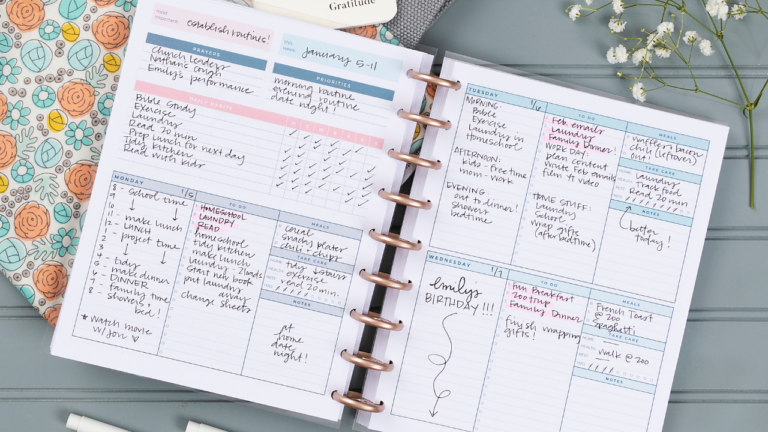 Gratitude
establish routines!
January 5-11
PRAYERS
Church Leaders
Nathan's cough
Emily's performance
PRIORITIES
morning routine
evening routine
date night!
DAILY HABITS
Bible Study
Exercise
Laundry
Read 20 min
Prep Lunch for next day
Tidy kitchen
Read with kids
MONDAY
1/5
8 - School time
10
11 - make lunch
12 - LUNCH
1 - project time
2
3
4 - tidy
5 - make dinner
6 - DINNER
7 - family time
8 - showers &
bed!
* watch movie
w/ Jon
TO DO
HOMESCHOOL
LAUNDRY
READ
homeschool
tidy kitchen
make lunch
laundry - 2 loads
start new book
put laundry
away
change sheets
MEALS
cereal
snacky plater
chili + chips
TAKE CARE
tidy stairs
exercise
read 20 min
NOTES
at
home
date
night!
TUESDAY
1/6
MORNING:
Bible
Exercise
Laundry in
Homeschool
AFTERNOON:
kids - free time
mom - work
EVENING:
out to dinner!
showers
bedtime
TO DO
Feb emails
Laundry
Family Dinner
WORK DAY
plan content
write Feb emails
film 1 video
HOME STUFF:
Laundry
School
wrap gifts
(after bedtime)
MEALS
waffles + bacon
chili (leftover)
out!
TAKE CARE
Laundry
track food
read 20 min
NOTES
better
today!
WEDNESDAY
1/7
Emily's
BIRTHDAY!!!
TO DO
Fun Breakfast
zoo trip
Family Dinner
finish wrapping
gifts!
MEALS
French Toast
@ zoo
Spaghetti
TAKE CARE
walk @ zoo
NOTES